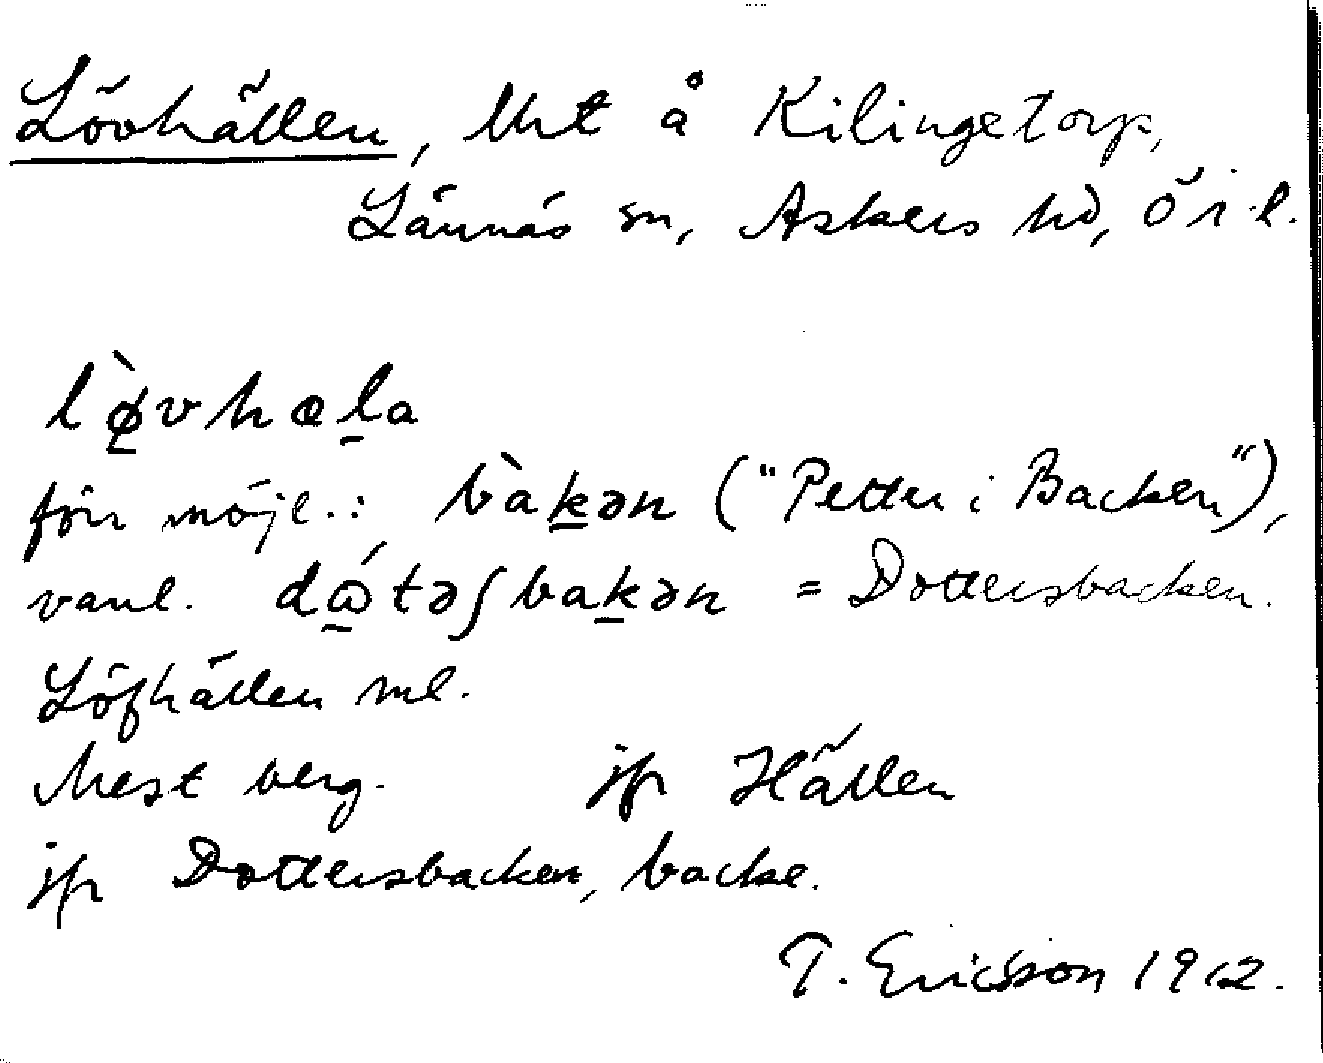 Lövhällen, lht å Kilingetorp,
Lännäs sn, Askers hd, Ör. l.
lø̀vhæla
förr möjl.: bàkən ("Petter i Backen"),
vanl. dɷ́təʃbakən = Dottersbacken.
Löfhällen ml.
Mest berg. jfr Hällen
jfr Dottersbacken, backe.
T. Ericsson 1912.